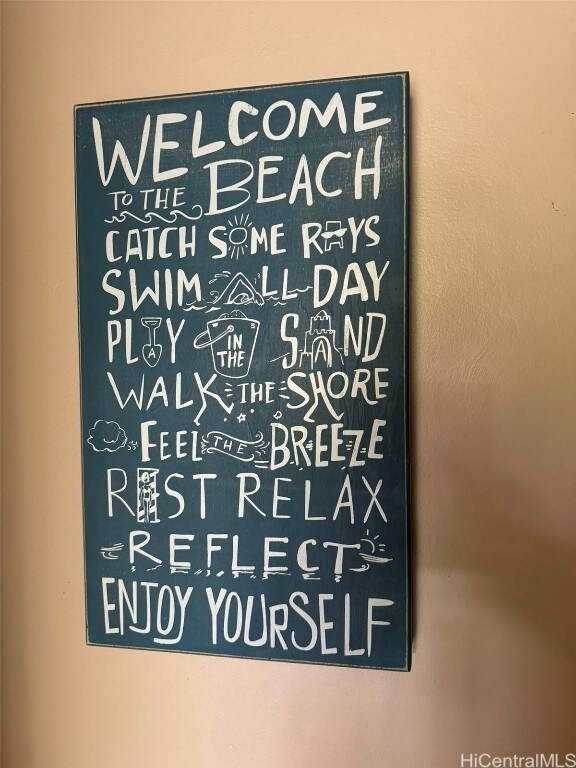 WELCOME
TO THE BEACH
CATCH SOME RAYS
SWIM ALL DAY
PLAY IN THE SAND
WALK THE SHORE
FEEL THE BREEZE
REST RELAX
REFLECT
ENJOY YOURSELF
HiCentralMLS